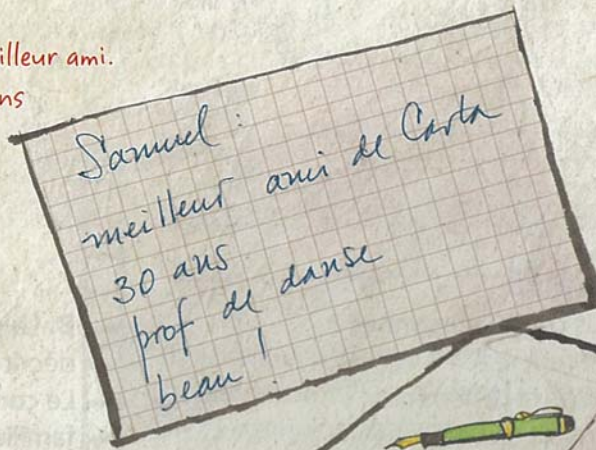 illeur ami.
ns
Samuel :
meilleur ami de Carla
30 ans
prof de danse
beau !